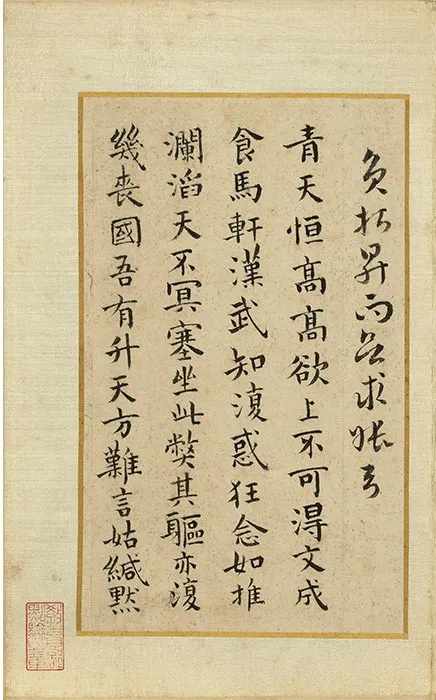 昇而求
青天恒高高欲上不可得文成
食馬軒漢武知復惑狂念如推
瀾滔天不冥塞坐此弊其軀亦復
幾喪國吾有升天方難言姑緘默